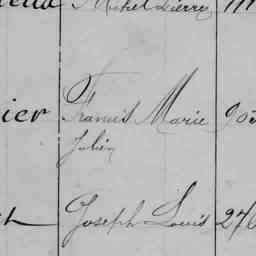 Michel Pierre
ier Francis Marie 903
Julien
Joseph Louis 276